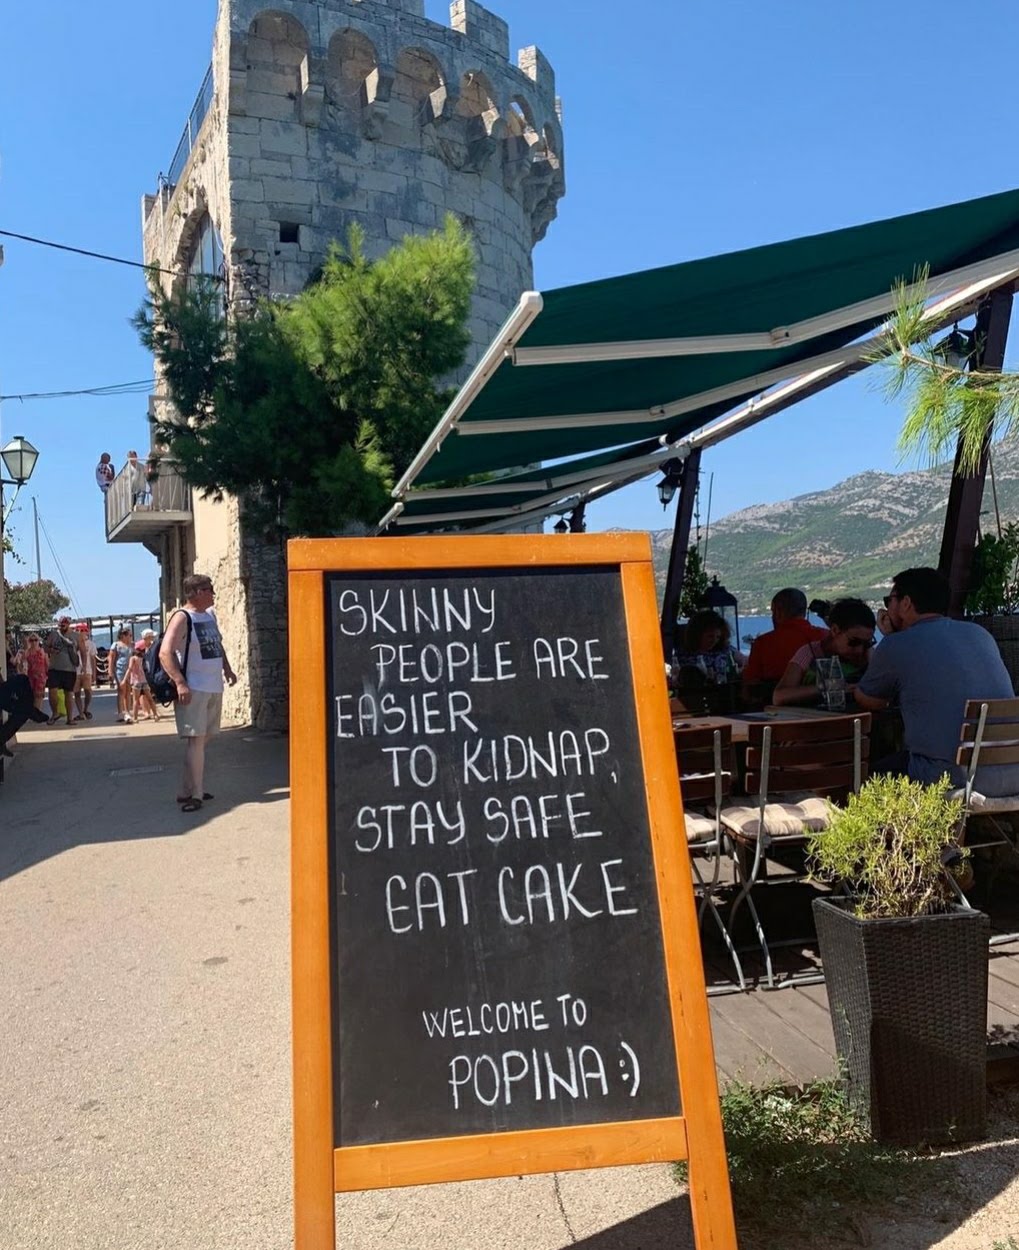 SKINNY
PEOPLE ARE
EASIER
TO KIDNAP,
STAY SAFE
EAT CAKE
WELCOME TO
POPINA :)